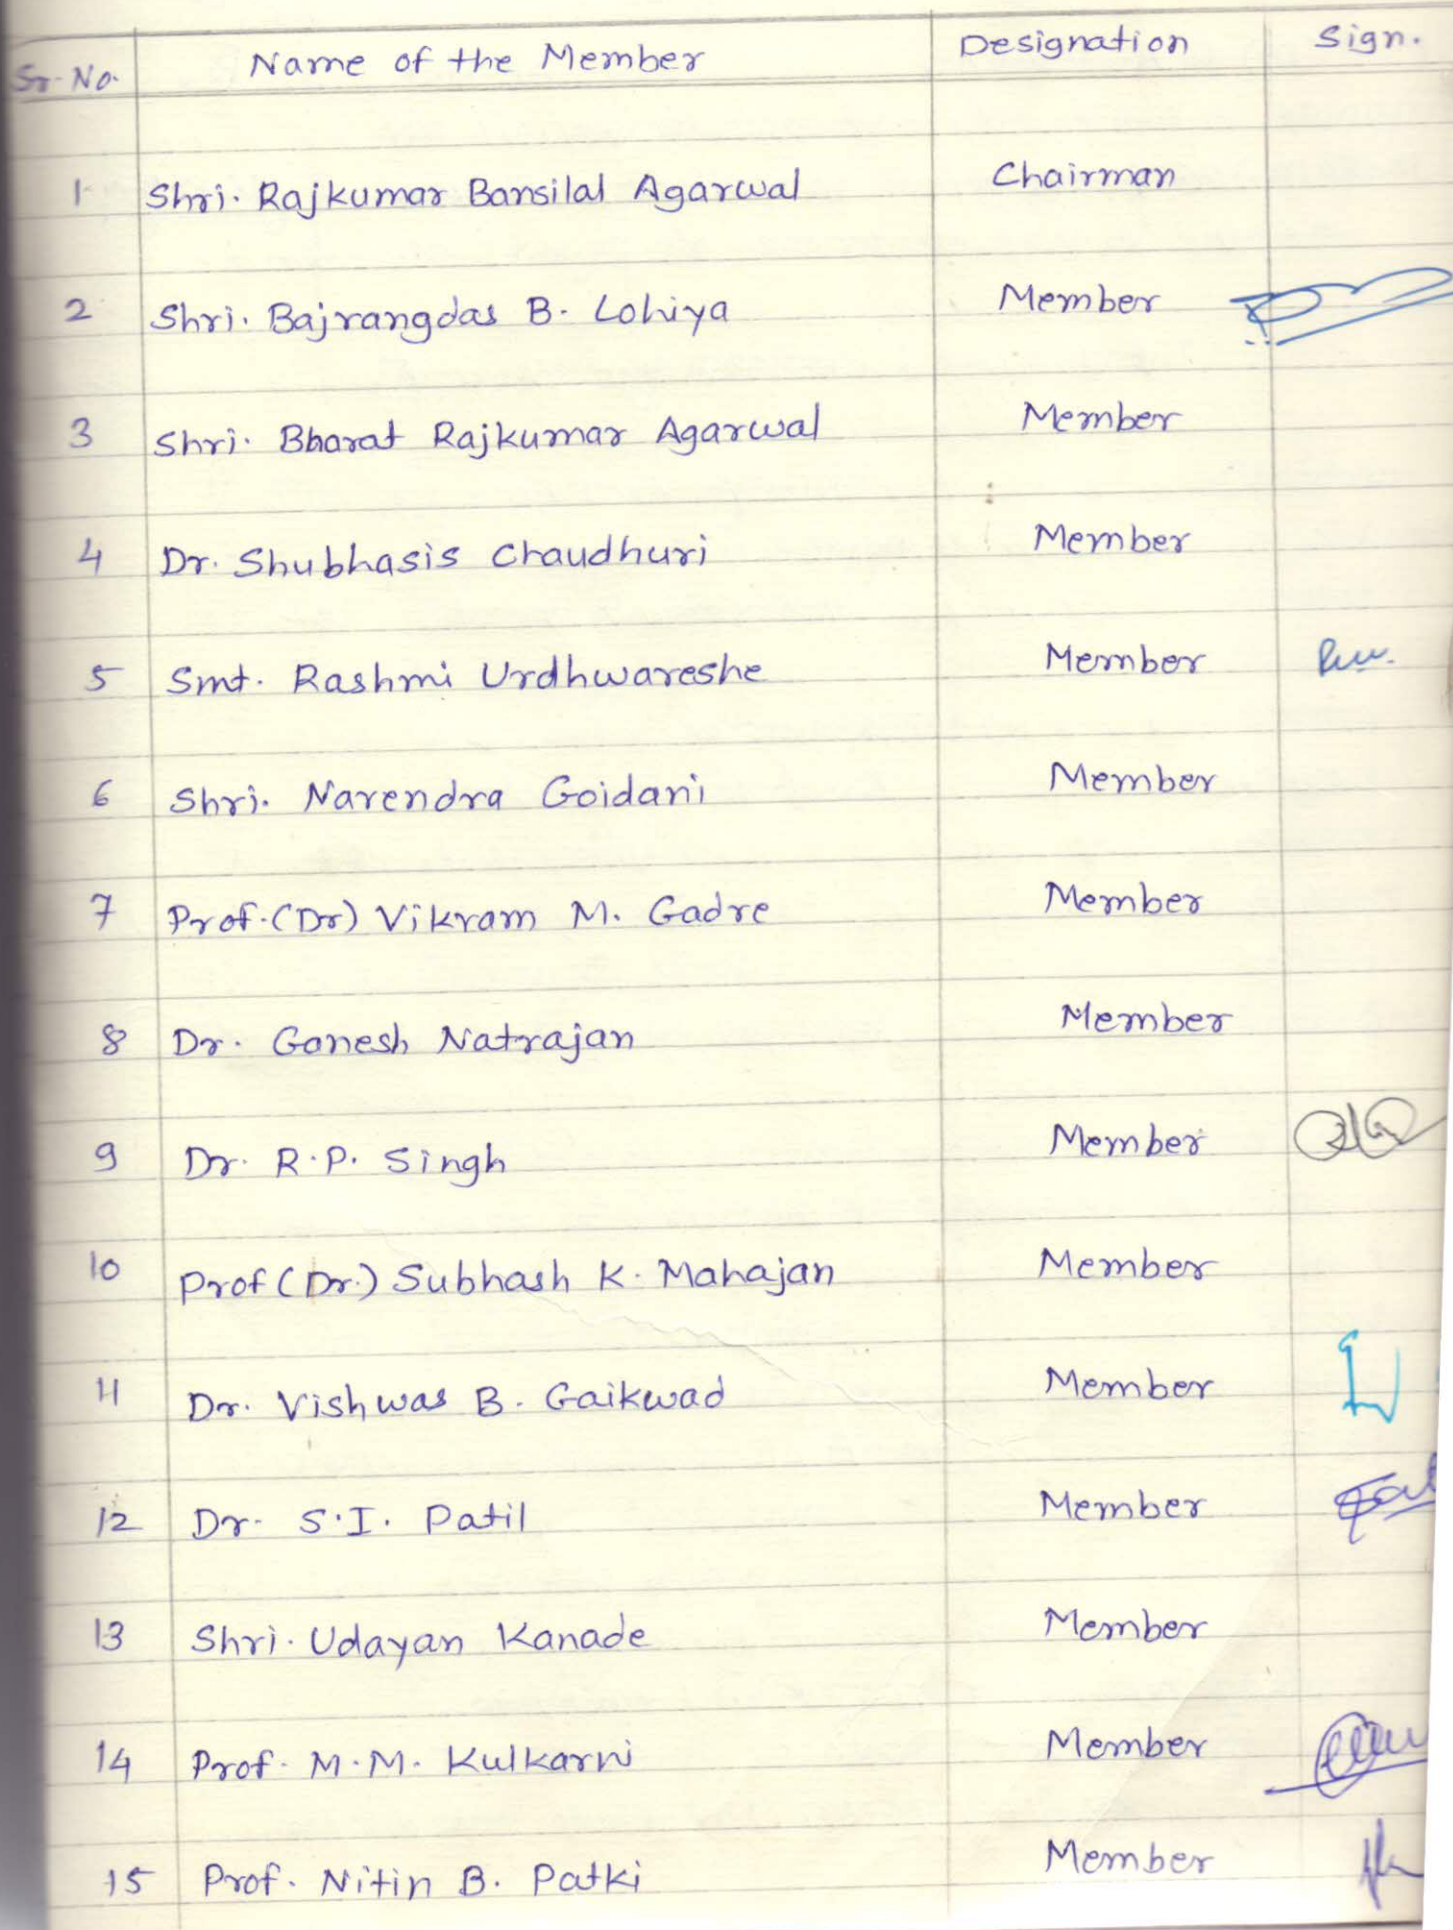 Sr. No. Name of the Member Designation Sign.
1 Shri. Rajkumar Bansilal Agarwal Chairman
2 Shri. Bajrangdas B. Lohiya Member
3 Shri. Bharat Rajkumar Agarwal Member
4 Dr. Shubhasis Chaudhuri Member
5 Smt. Rashmi Urdhwareshe Member
6 Shri. Narendra Goidani Member
7 Prof. (Dr) Vikram M. Gadre Member
8 Dr. Ganesh Natrajan Member
9 Dr. R.P. Singh Member
10 Prof (Dr.) Subhash K. Mahajan Member
11 Dr. Vishwas B. Gaikwad Member
12 Dr. S.I. Patil Member
13 Shri. Udayan Kanade Member
14 Prof. M.M. Kulkarni Member
15 Prof. Nitin B. Patki Member